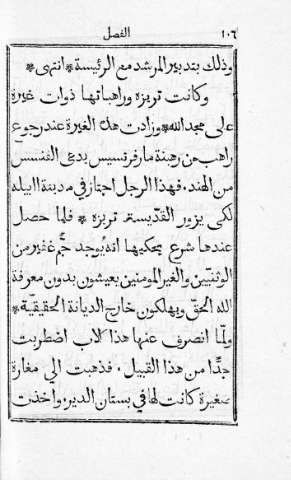 ١٠٦ الفصل
وذلك بتدبير المرشد مع الرئيسة * انتهى *
وكانت تريزه وراهباتها ذوات غيرة
على مجد الله * وزادت هذه الغيرة عند رجوع
راهب من رهبنة مار فرنسيس يدعى الفنسس
من الهند. فهذا الرجل اجتاز في مدينة ابيله
لكي يزور القدّيسة تريزه * فلما حصل
عندها شرع يحكيها انه يُوجد جمٌّ غفير من
الوثنيّين والغير المومنين يعيشون بدون معرفة
الله الحقّ ويهلكون خارج الديانة الحقيقيّة *
ولمّا انصرف عنها هذا الاب اضطربت
جدًّا من هذا القبيل. فذهبت الي مغارة
صغيرة كانت لها في بستان الدير. واخذت